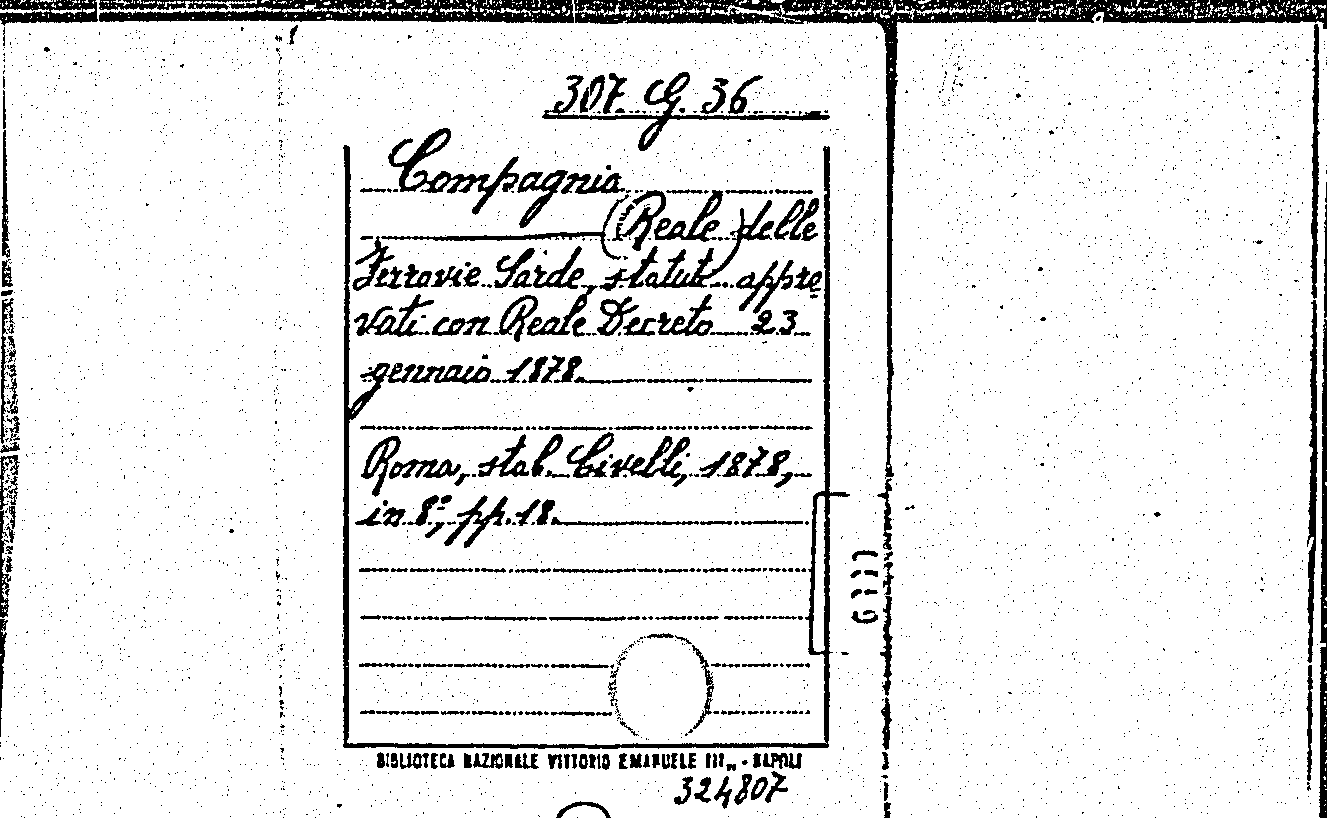 307. G. 36
Compagnia
(Reale) delle
Ferrovie Sarde, statuti appro
vati con Reale Decreto 23
gennaio 1878.
Roma, stab. Civelli, 1878,
in 8º, pp. 18.
BIBLIOTECA NAZIONALE VITTORIO EMANUELE III„ - NAPOLI
324807